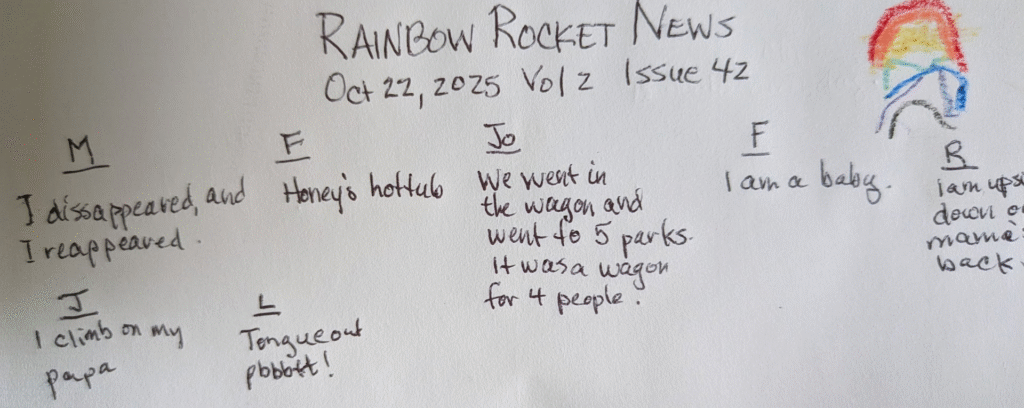 RAINBOW ROCKET NEWS
Oct 22, 2025 Vol 2 Issue 42
M
I dissappeared, and
I reappeared.
F
Honey's hottub
Jo
We went in
the wagon and
went to 5 parks.
It was a wagon
for 4 people.
F
I am a baby.
R
i am
down
mama's
back.
J
I climb on my
papa
L
Tongue out
pbbbtt!